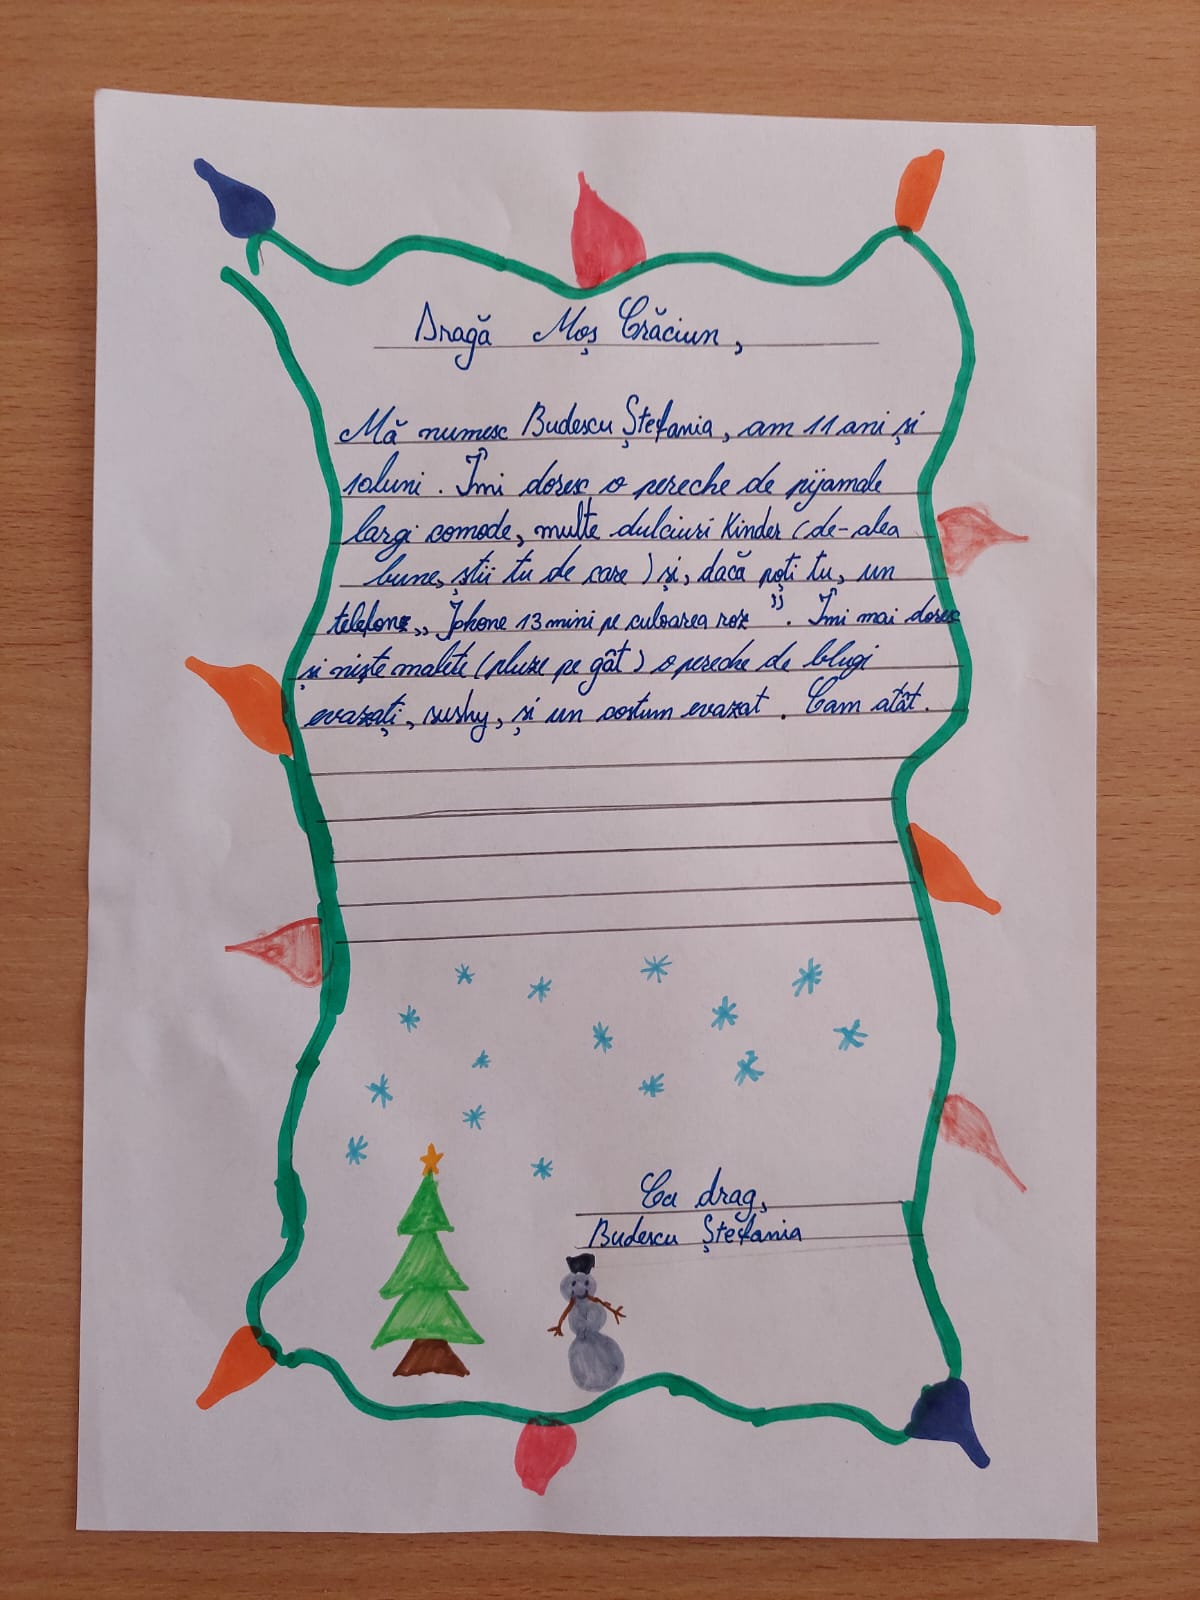 Dragă Moș Crăciun,
Mă numesc Budescu Ștefania, am 11 ani și
10luni. Îmi doresc o pereche de pijamale
largi comode, multe dulciuri Kinder (de-alea
bune, știi tu de care) și, dacă poți tu, un
telefon „ Iphone 13 mini pe culoarea roz ”. Îmi mai doresc
și niște malete (pluze pe gât) o pereche de blugi
evazați, sushy, și un costum evazat. Cam atât.
Cu drag,
Budescu Ștefania